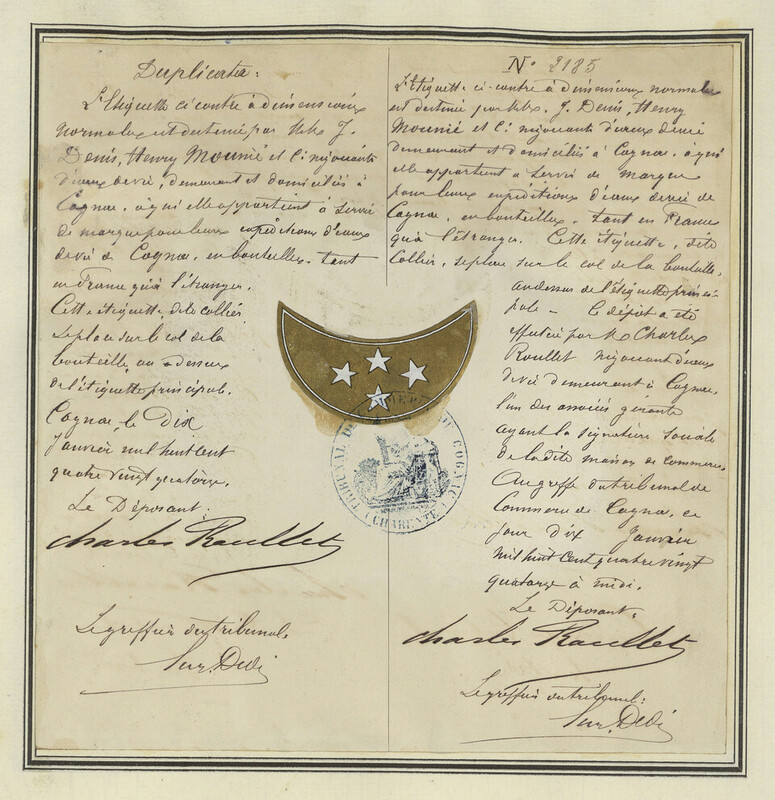 Duplicata :
L'Etiquette ci contre à dimensions
normales est destinée par M.M. J.
Denis, Henry Mounié et Cie négociants
d'eaux de vie, demeurant et domiciliés à
Cognac, à qui elle appartient à servir
de marque pour leurs expéditions d'eaux
de vie de Cognac, en bouteilles. tant
en France qu'à l'étranger.
Cette étiquette, dite collier,
se place sur le col de la
bouteille, au dessus
de l'étiquette principale.
Cognac, le Dix
Janvier mil huit cent
quatre vingt quatorze.
Le Déposant:
Charles Roullet
Le greffier du tribunal,
No 2185
L'Etiquette ci-contre à dimensions normales
est destinée par M.M. J. Denis, Henry
Mounié et Cie négociants d'eaux de vie
demeurant et domiciliés à Cognac, à qui
elle appartient à servir de marque
pour leurs expéditions d'eaux de vie de
Cognac, en bouteilles. tant en France
qu'à l'étranger. Cette étiquette, dite
Collier, se place sur le col de la bouteille,
au dessus de l'étiquette princi-
pale - Le dépôt a été
effectué par M. Charles
Roullet négociant d'eaux
de vie demeurant à Cognac,
l'un des associés gérants
ayant la signature sociale
de la dite maison de commerce.
Au greffe du tribunal de
Commerce de Cognac, ce
jour dix Janvier
mil huit cent quatre vingt
quatorze à midi.
Le Déposant:
Charles Roullet
Le greffier du tribunal:
TRIBUNAL DE COGNAC
(CHARENTE)